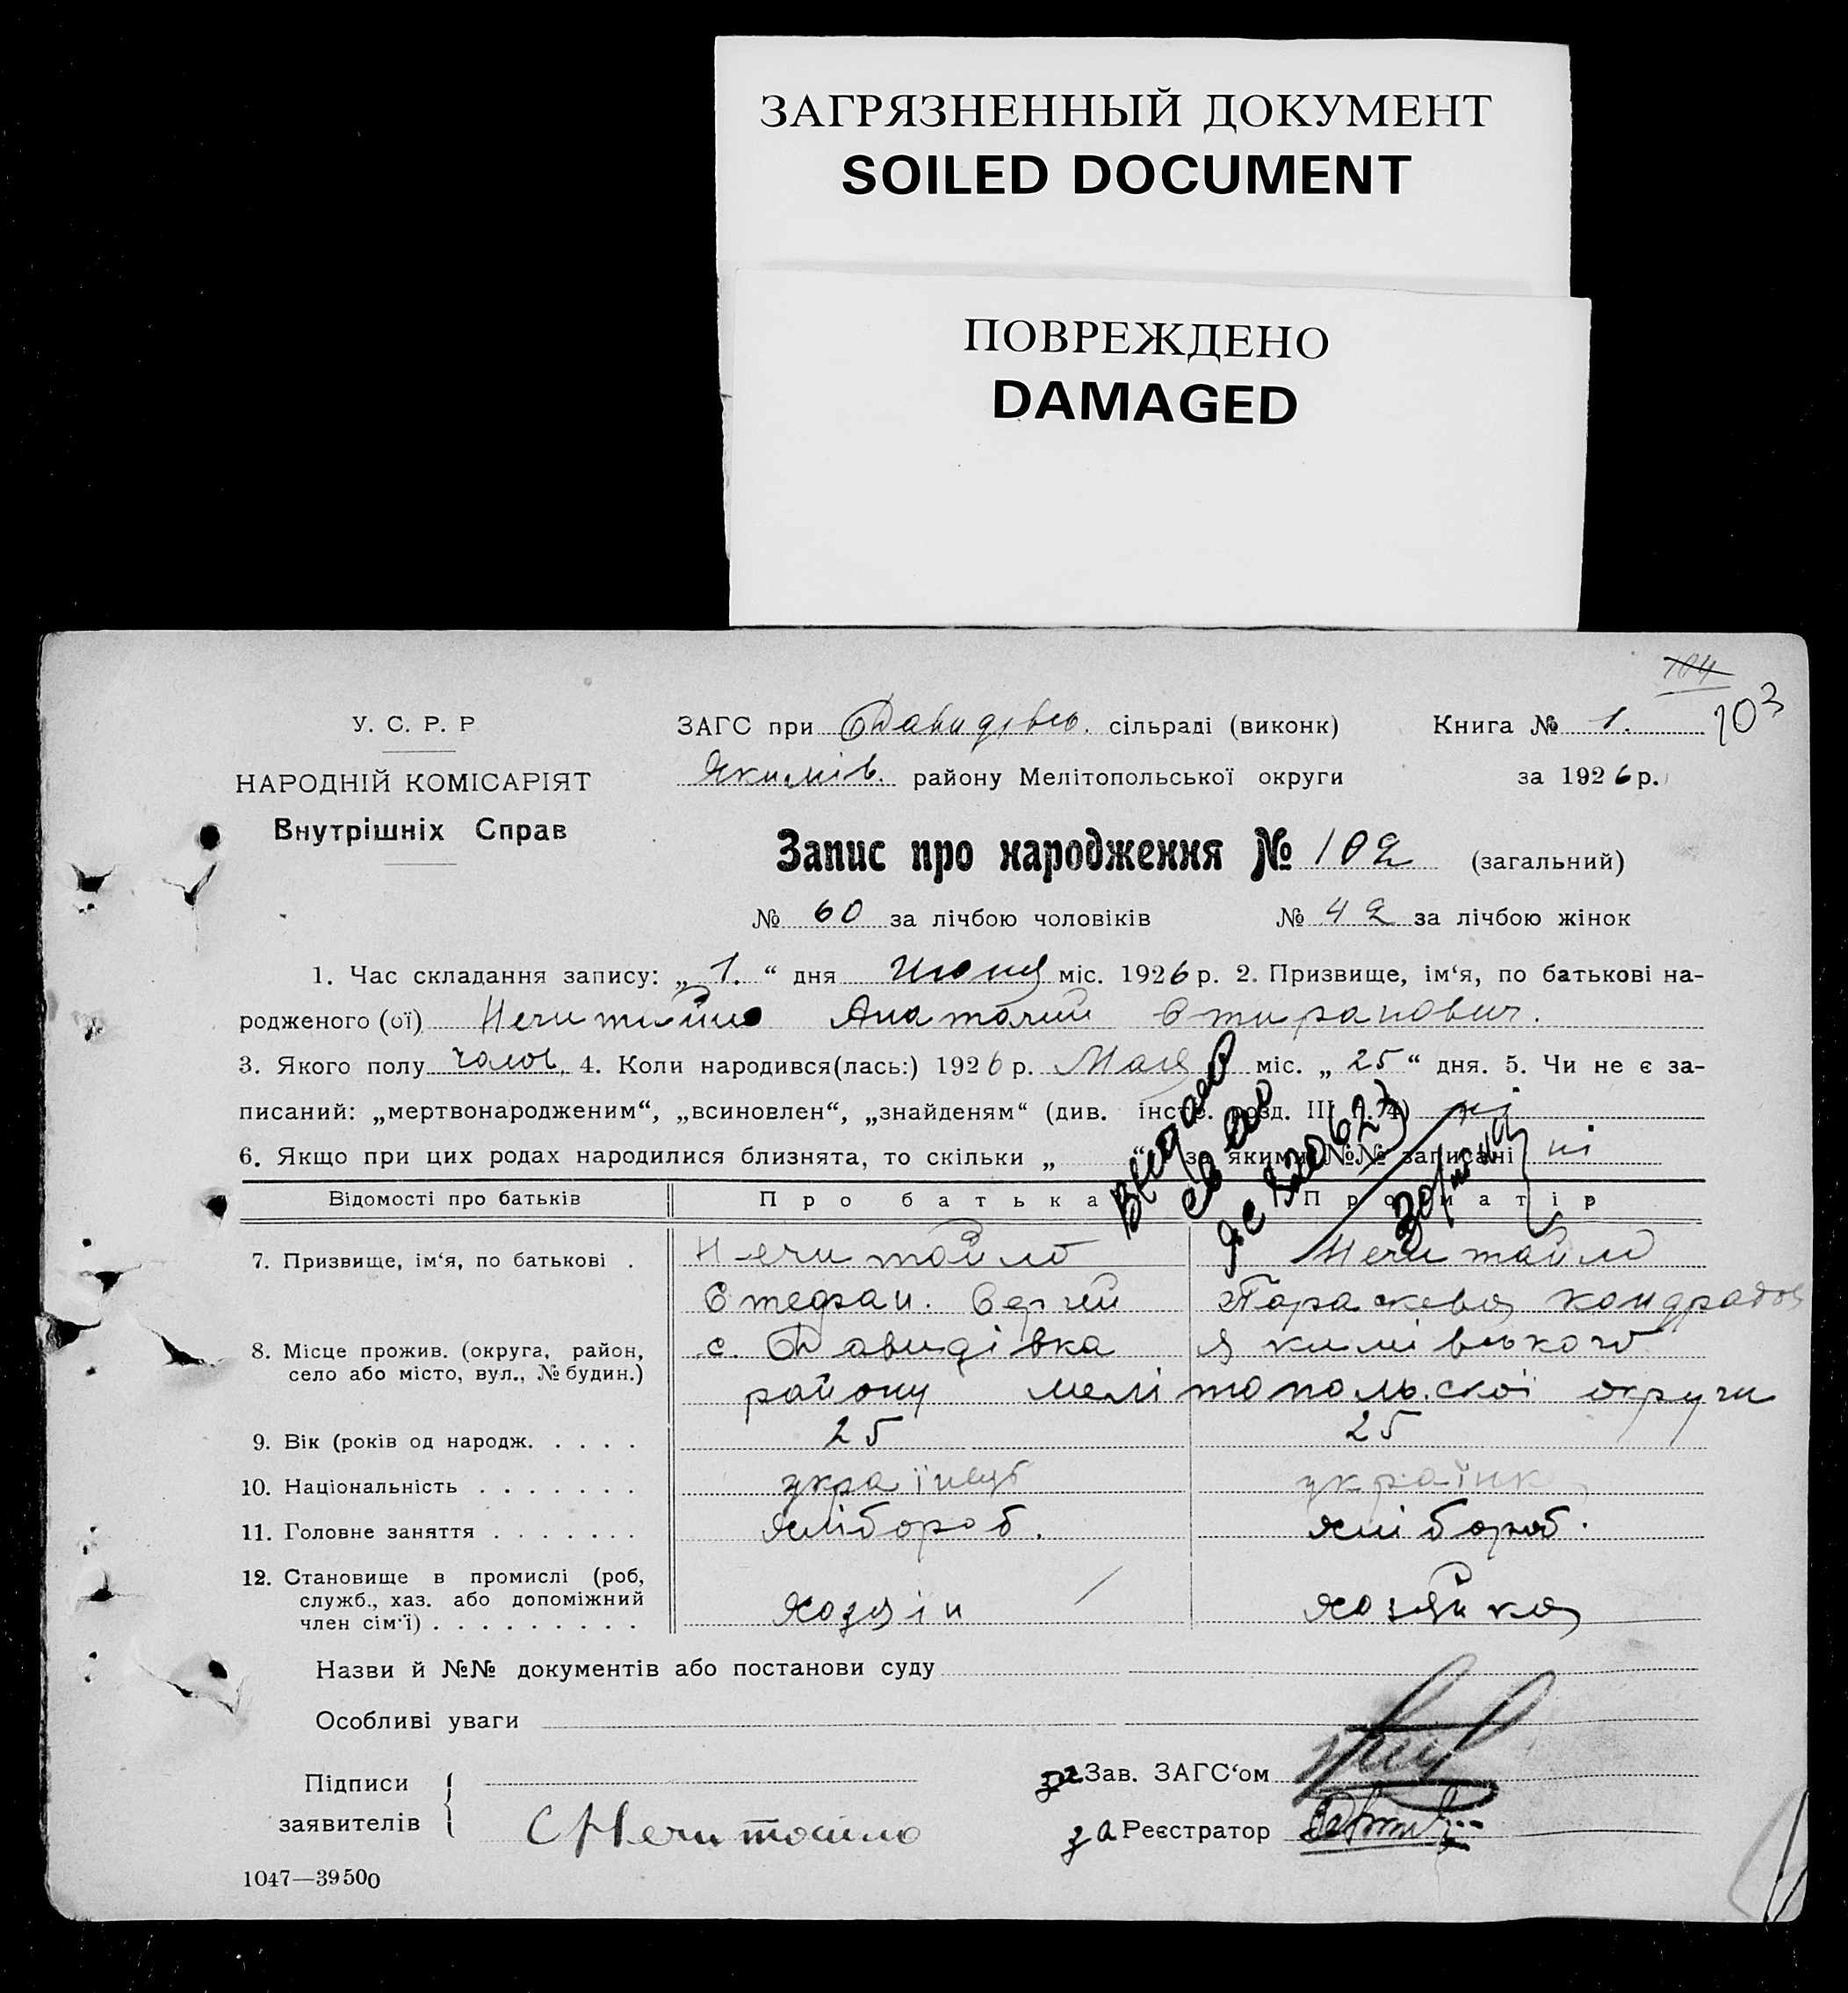 ЗАГРЯЗНЕННЫЙ ДОКУМЕНТ
SOILED DOCUMENT
ПОВРЕЖДЕНО
DAMAGED
104
103
У. С. Р. Р
НАРОДНІЙ КОМІСАРІЯТ
Внутрішніх Справ
ЗАГС при Давидівсь. сільраді (виконк) Книга № 1.
Якимів. району Мелітопольської округи за 1926 р.
Запис про народження № 102 (загальний)
№ 60 за лічбою чоловіків № 42 за лічбою жінок
1. Час складання запису: „1.“ дня Июня міс. 1926 р. 2. Призвище, ім‘я, по батькові на-
родженого (ої) Нечитайло Анатолий
3. Якого полу чолов. 4. Коли народився(лась:) 1926 р. Мая міс. „25“ дня. 5. Чи не є за-
писаний: „мертвонародженим“, „всиновлен“, „знайденям“ (див. інстр. розд. III п. 4) ні
6. Якщо при цих родах народилися близнята, то скільки „ “ за якими №№ записані ні
Відомості про батьків Про батька Про матір
7. Призвище, ім‘я, по батькові . Нечитайло Нечитайло
Стефан. Сергій Параскева Кондратов
8. Місце прожив. (округа, район, с. Давидівка Якимівського
село або місто, вул., № будин.)
району мелітопольської округи
9. Вік (років од народж. . . . . 25 25
10. Національність . . . . . . . українець українк
11. Головне заняття . . . . . . . хлібороб. хлібороб.
12. Становище в промислі (роб,
служб., хаз. або допоміжний
член сім‘ї) . . . . . . . . . хозяін хозяйка
Назви й №№ документів або постанови суду
Особливі уваги
Підписи
заявителів С Нечитайло
за Зав. ЗАГС‘ом
за Реєстратор
1047—39500